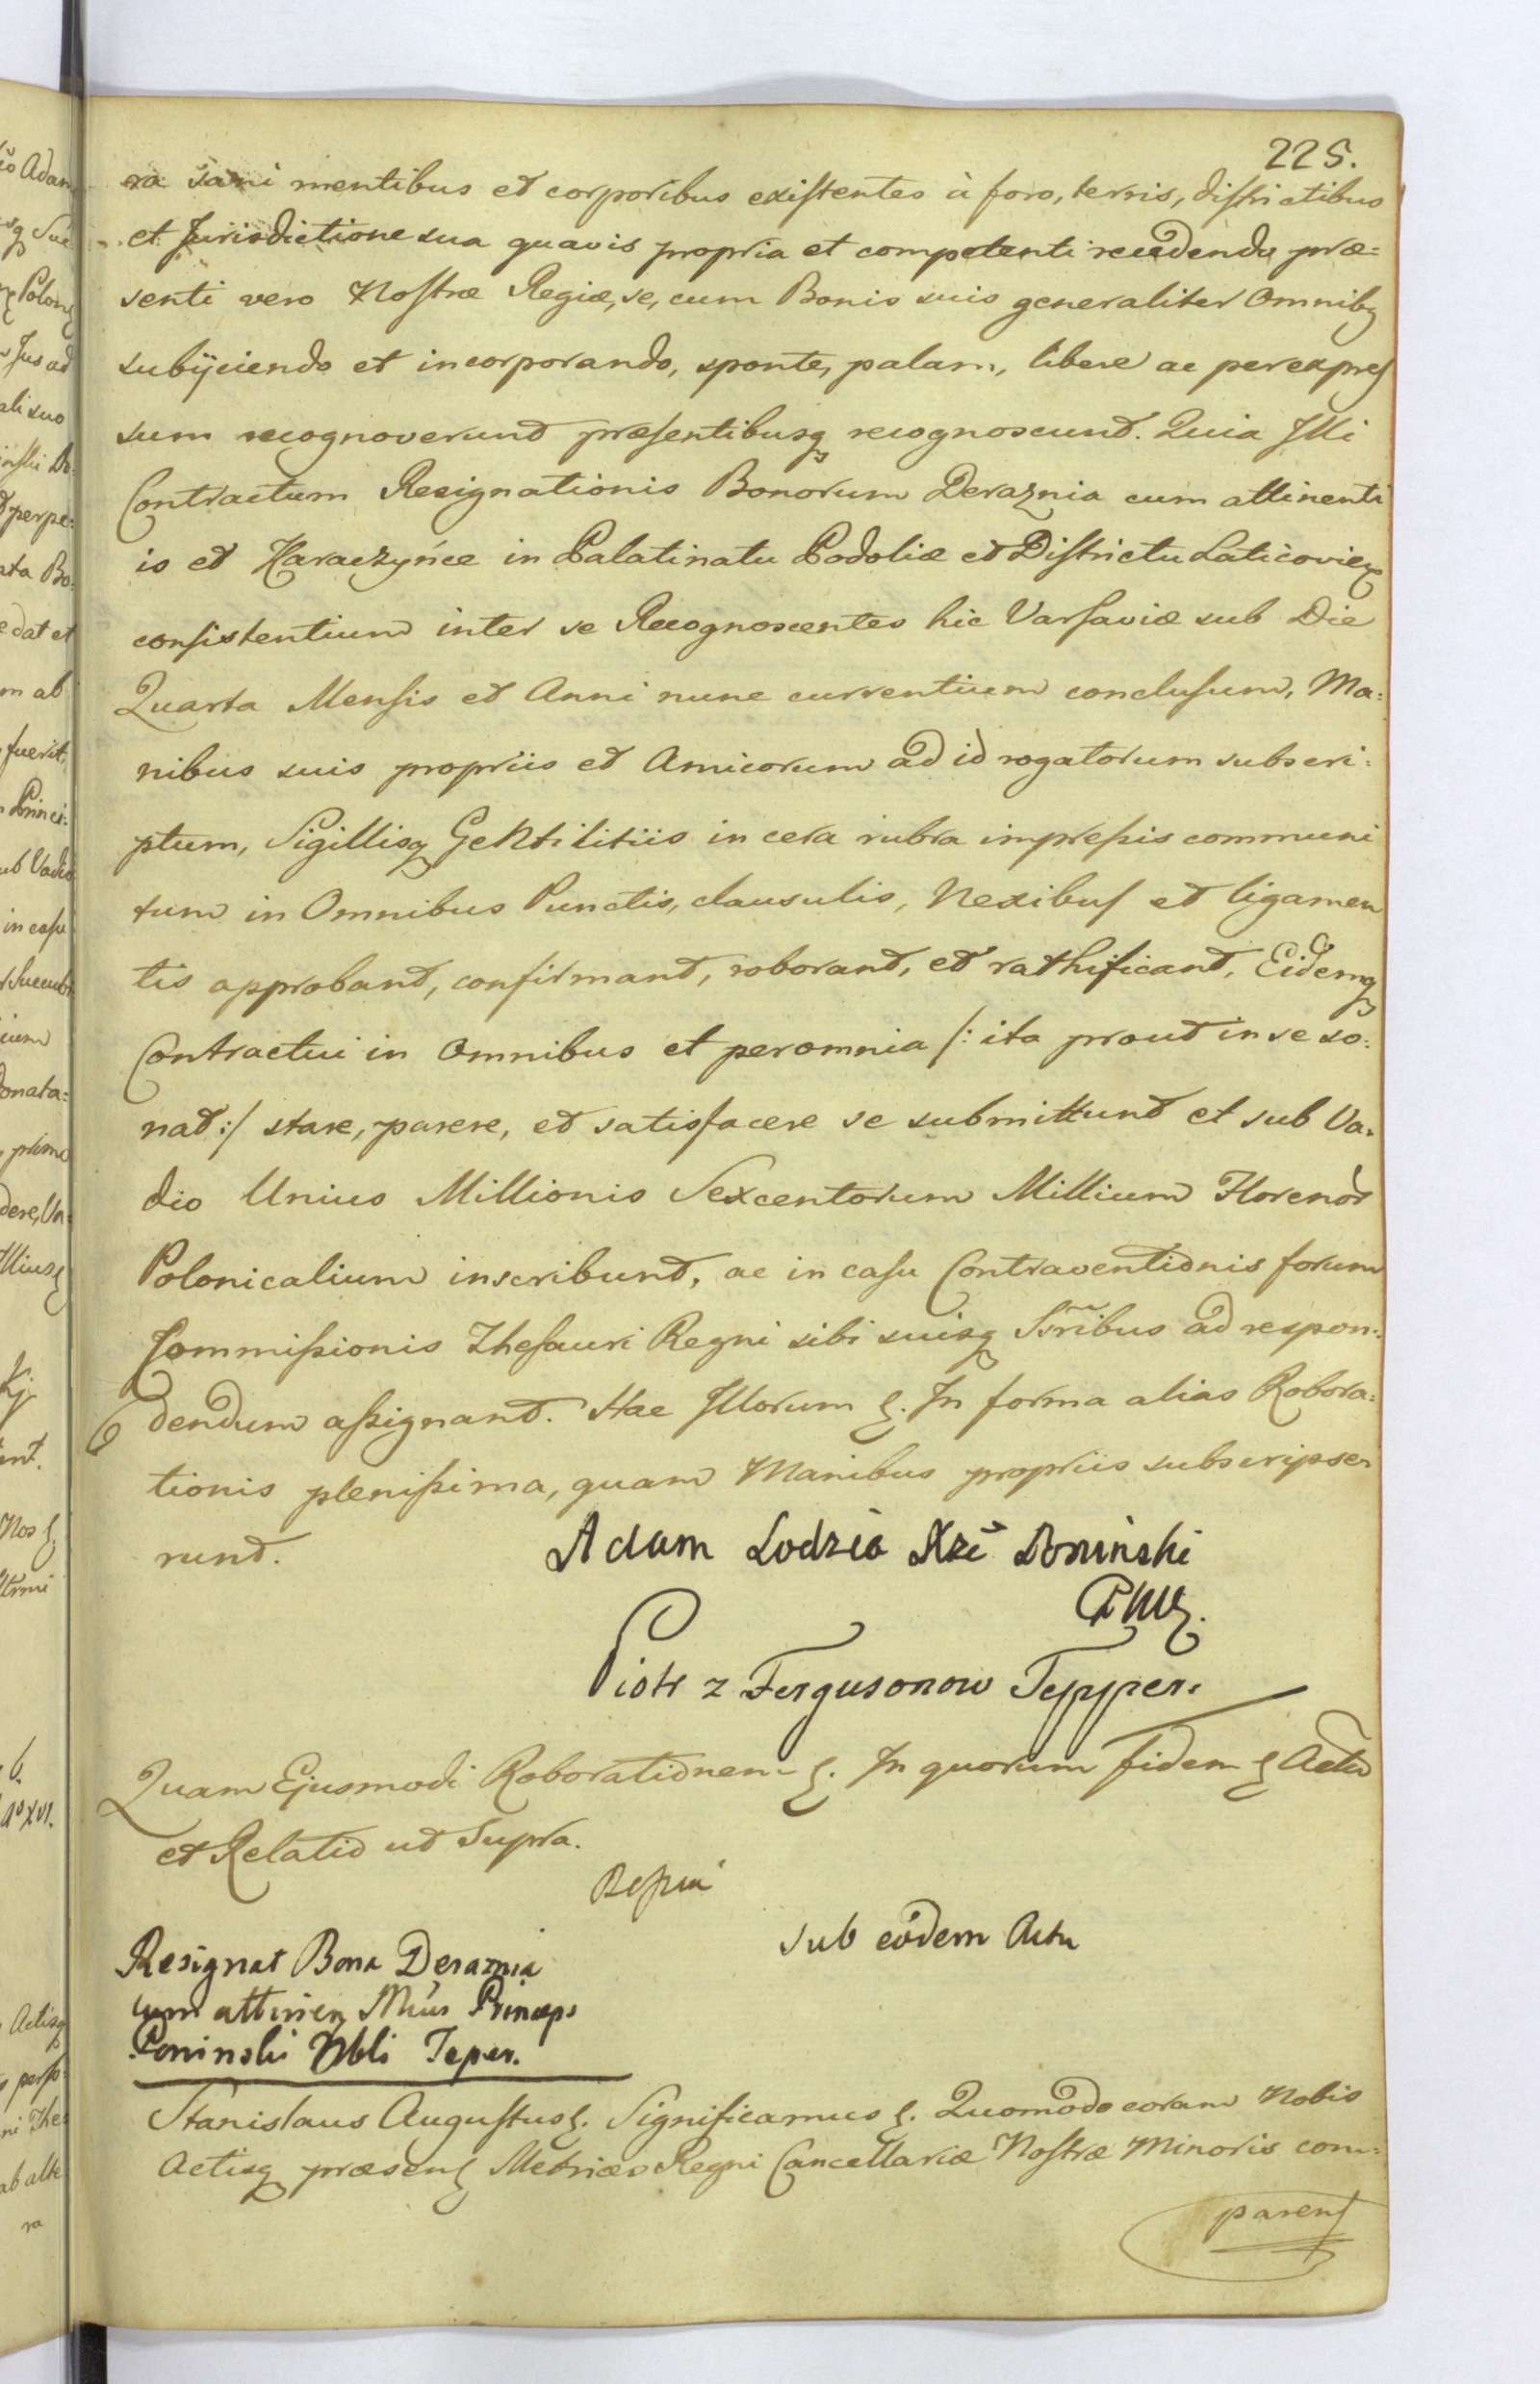 225.
ra sani mentibus et corporibus existentes à foro, terris, districtibus
et Jurisdictione sua quavis propria et competenti recedendo præ=
senti vero Nostræ Regiæ, se, cum Bonis suis generaliter Omnibq
subijciendo et incorporando, sponte, palam, libere ac perexpres
sum recognoverunt præsentibusq recognoscunt. Quia Illi
Contractum Resignationis Bonorum Deraznia cum attinenti
is et Karaczyńce in Palatinatu Podoliæ et Districtu Laticoviem
consistentium inter se Recognoscentes hic Varsaviæ sub Die
Quarta Mensis et Anni nunc currentium conclusum, Ma=
nibus suis propriis et Amicorum ad id rogatorum subscri=
ptum, Sigillisq Gentilitiis in cera rubra impressis communi
tum in Omnibus Punctis, clausulis, Nexibus et ligamen
tis approbant, confirmant, roborant, et rathificant, Eidemq
Contractui in Omnibus et peromnia /: ita prout in se so=
nat :/ stare, parere, et satisfacere se submittunt et sub Va=
dio Unius Millionis Sexcentorum Millium Florenor
Polonicalium inscribunt, ac in casu Contraventionis forum
Commissionis Thesauri Regni sibi suisq Ssribus ad respon=
dendum assignant. Hac Illorum &. In forma alias Robora=
tionis plenissima, quam Manibus propriis subscripse=
runt.
Adam Lodzia Xże Poninski
PWK.
Piotr z Fergusonow Tepper.
Quam Ejusmodi Roborationem &. In quorum fidem & Actu
et Relatio ut Supra.
sub eodem Actu
Resignat Bona Deraznia
cum attinen Illius Princeps
Poninski Nbli Teper.
Stanislaus Augustus &. Significamus &. Quomodo coram Nobis
Actisq præsen Metrices Regni Cancellariæ Nostræ Minoris com=
parens